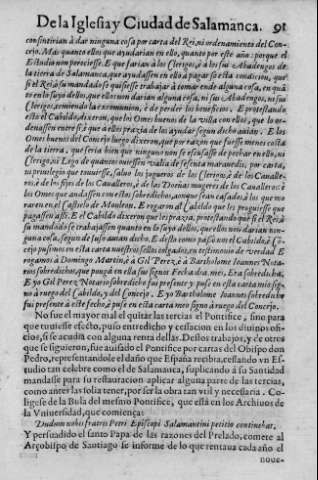 De la Iglesia y Ciudad de Salamanca. 91
consintirian à dar ninguna cosa por carta del Rei, ni ordenamiento del Con-
cejo. Mas quanto ellos que ayudarian en ello, quanto por este año: porque el
Estudio non pereciesse. E que farian à los Clerigos, è à los sus Abadengos de
la tierra de Salamanca, que ayudassen en ello à pagar so esta condicion, que
si el Rei à su mandado se quisiesse trabajar à tomar ende alguna cosa, en quã
to en lo suyo dellos, que ellos non darian alguna cosa, ni sus Abadengos, ni sus
Clerigos, temiendo la excomunion, è de perder los beneficios. E protestando
esto el Cabildo, dixeron, que los Omes buenos de la villa con ellos, que lo or-
denassen entre si, è que à ellos prazia de los ayudar segun dicho avian. E los
Omes buenos del Concejo luego dixeron, que por razon que fuesse menos costa
de la tierra, que seria bien que ninguno non se escusasse de pechar en ello, ni
Clerigo, ni Lego de quantos oviessen valia de sesenta maravedis, por carta,
ni privilegio que toviesse, salvo los jugueros de los Clerigos, è de los Cavalle-
ros, è de los fijos de los Cavalleros, è de las Doñas mugeres de los Cavalleros: è
los Omes que andassen con estos sobredichos, aunque sean casados, è los que mo
raren en el Castelo de Monleon. E rogaron al Cabildo que les pluguiesse que
pagassen assi. E el Cabildo dixeron que les prazia, protestando que si el Rei, è
su mandado se trabajassen quanto en lo suyo dellos, que ellos non darian nin-
guna cosa, segun de suso avian dicho. E desto como passò nos el Cabildo, è Cõ
cejo pusimos en esta carta nuestros sellos colgados, en testimonio de verdad. E
rogamos à Domingo Martin, è à Gil Perez, è à Bartholome Ioannes Nota-
rios sobredichos, que pongã en ella sus signos. Fecha dia, mes, Era sobredicha.
E yo Gil Perez Notario sobredicho fui presente y puse en esta carta mio sig-
no à ruego del Cabildo, y del Concejo. E yo Bartholome Ioannes sobredicho
fui presente à este fecho, è puse en esta carta mio signo à ruego del Concejo.
No fue el mayor mal el quitar las tercias el Pontifice, sino para
que tuviesse efecto, puso entredicho y cessacion en los divinos ofi-
cios, si se acudia con alguna renta dellas. Destos trabajos, y de otros
que se siguieron, fue avisado el Pontifice por cartas del Obispo don
Pedro, representandole el daño que España recibia, cessando vn Es-
tudio tan celebre como el de Salamanca, suplicando à su Santidad
mandasse para su restauracion aplicar alguna parte de las tercias,
como antes las solia tener, por ser la obra tan vtil y necessaria. Co-
ligese de la Bula del mesmo Pontifice, que està en los Archivos de
la Vniversidad, que comiença:
Dudum nobis fratris Petri Episcopi Salamantini petitio continebat,
Y persuadido el santo Papa de las razones del Prelado, comete al
Arçobispo de Santiago se informe de lo que rentava cada año el
nove-